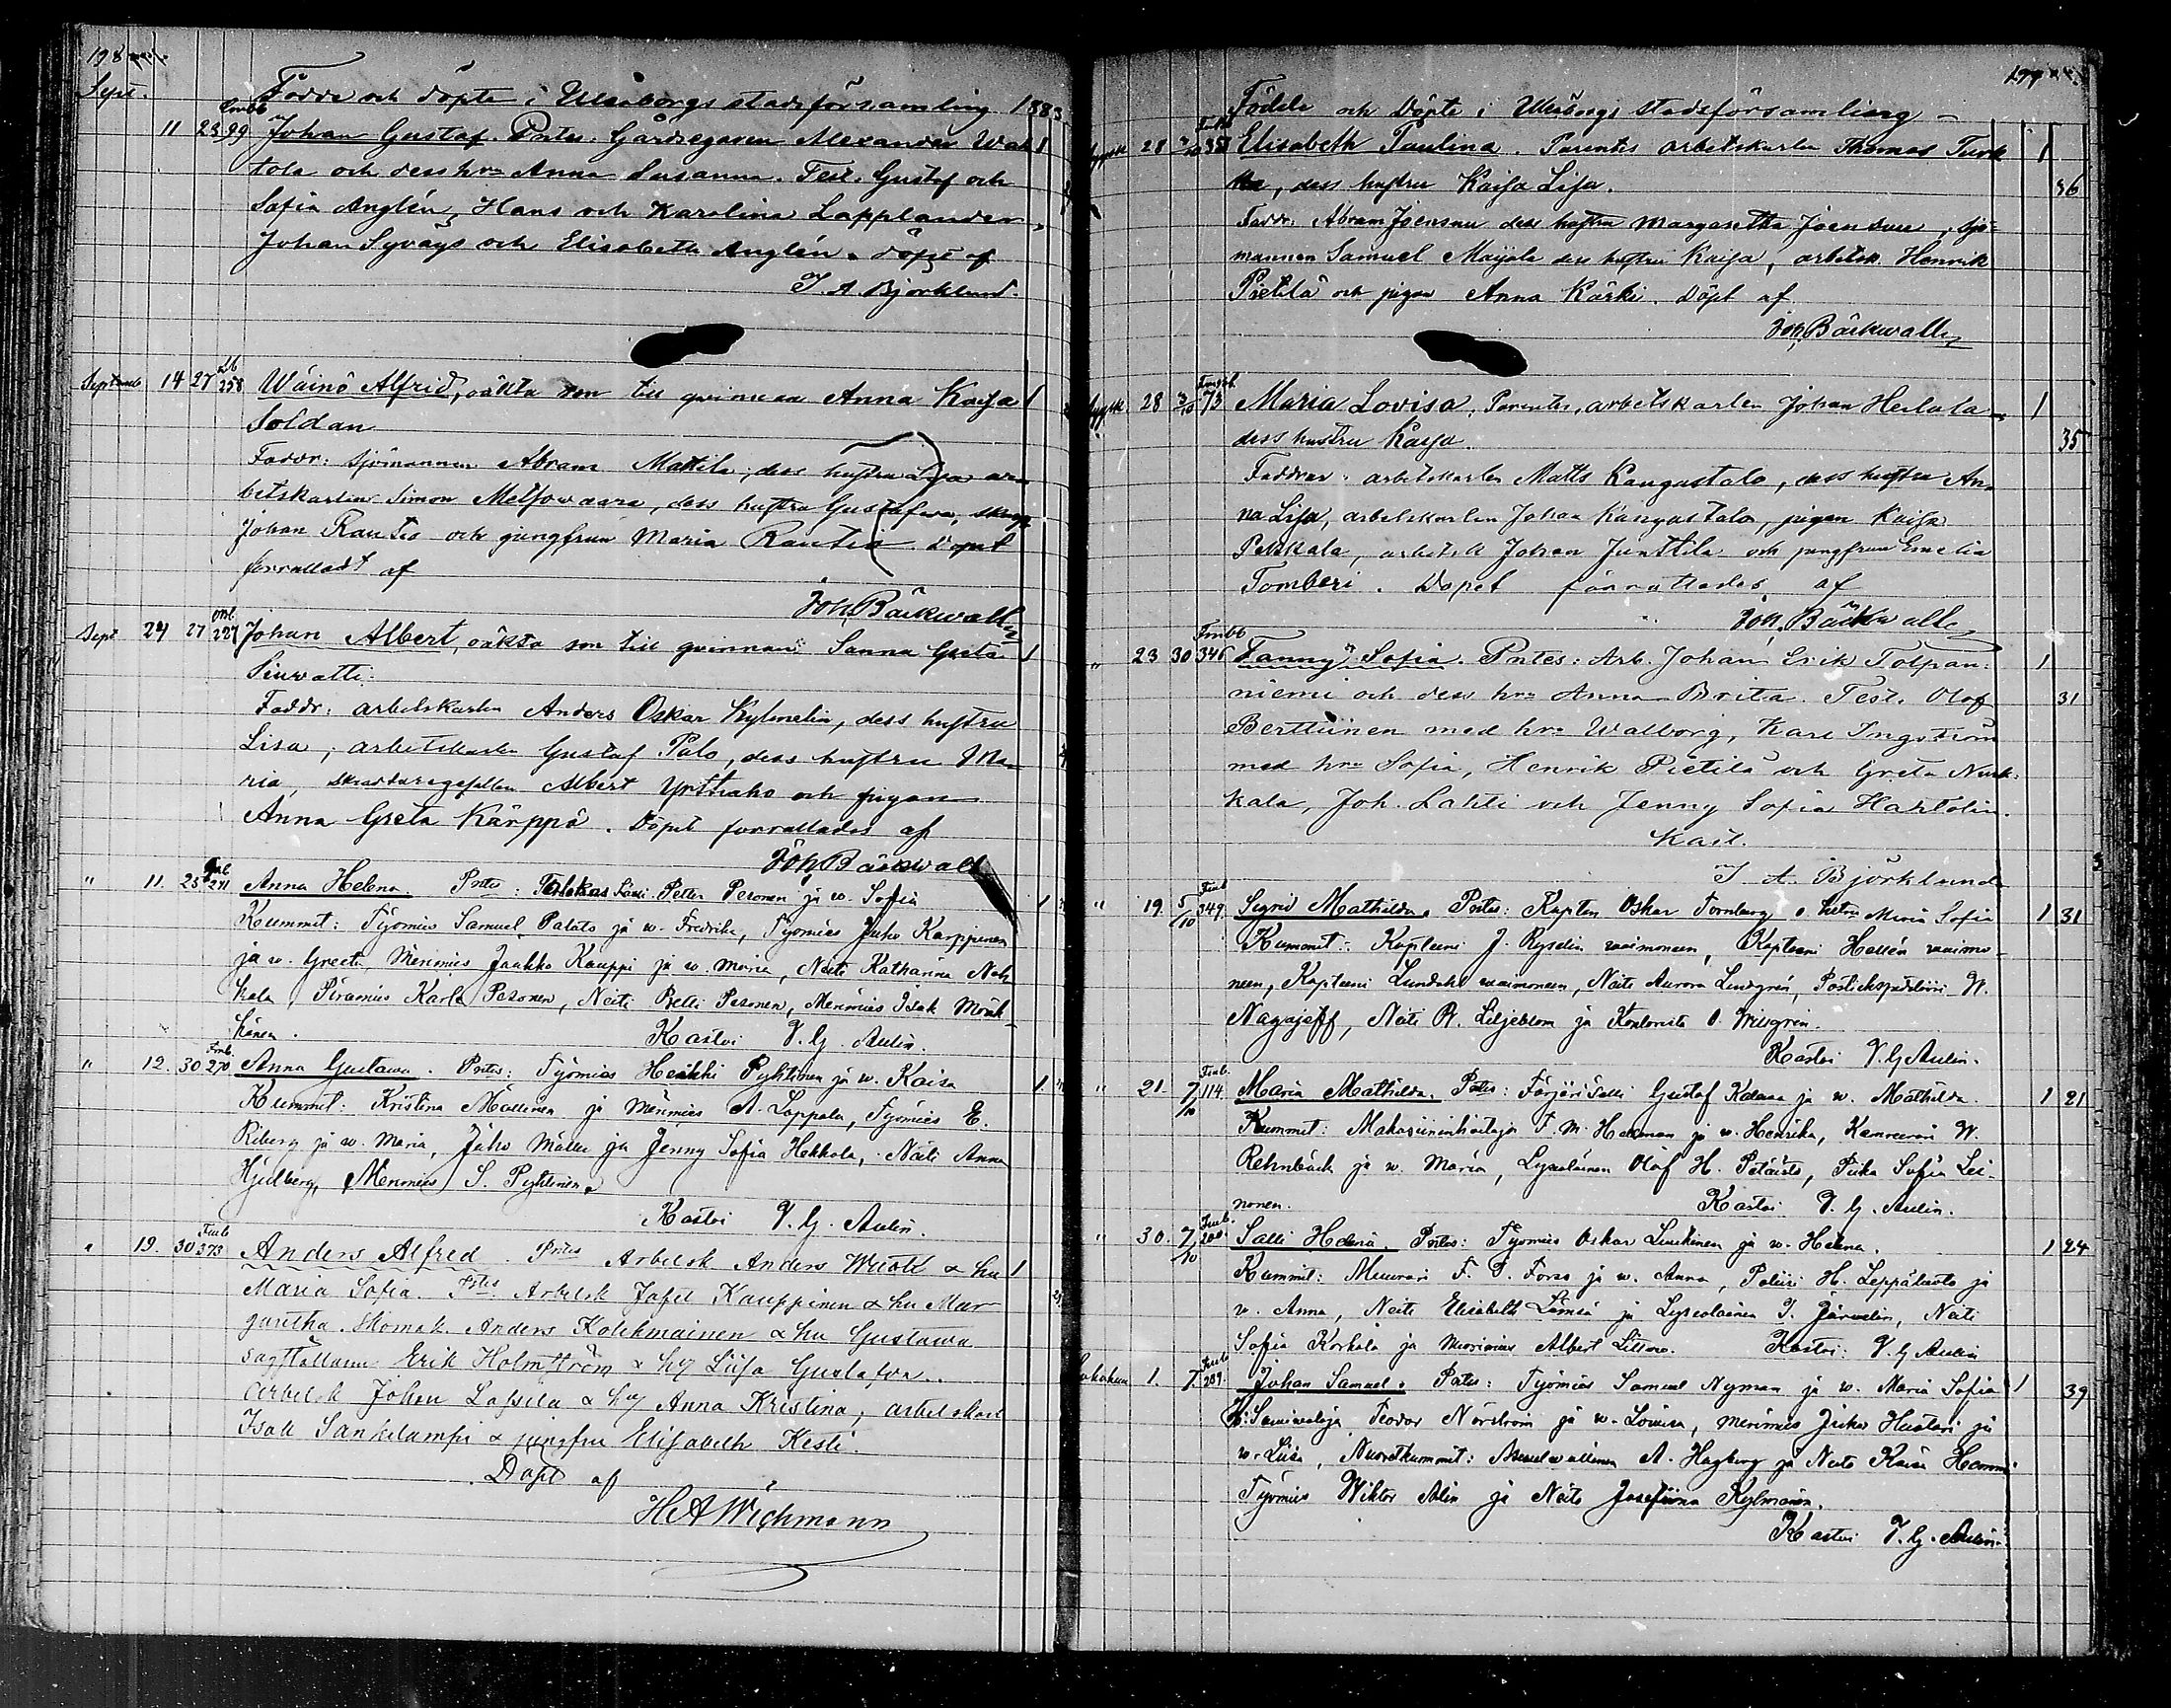 198
Sept. Födde och döpte i Uleåborgs stadsförsamling 1883
11 23 99 Johan Gustaf. Prntes: Gårdsegaren Alexander Wat 1
tola och dess hru Anna Susanna. Test. Gustaf och
Sofia Anglén, Hans och Karolina Lapplander,
Johan Syväys och Elisabeth Anglén. döpt af
I. A. Björklund.
Septemb 14 27 258 Wäinö Alfrid, oäkta son till qvinnan Anna Kaisa 1
Soldan
Faddr: Sjömannen Abram Mattila, dess hustru Lisa ar
betskarlen Simon Metsowaara, dess hustru Gustafva,
Johan Rautio och jungfrun Maria Rautio. Döpet
förrättadt af
Joh. Bäckwall
Sept 24 27 227 Johan Albert, oäkta son till qvinnan Sanna Greta 1
Siurvatti.
Faddr: arbetskarlen Anders Oskar Kylmelin, dess hustru
Lisa, arbetskarlen Gustaf Palo, dess hustru Ma
ria, skräddaregesellen Albert Yrttiaho och pigan
Anna Greta Kärppä. Döpet förrättades af
Joh. Bäckwall
" 11. 25 271 Anna Helena. Prtes: Petter Pesonen ja w. Sofia 1
Kummit: Työmies Samuel Palato ja w. Fredrika, Työmies Juho Karppinen
ja w. Greeta, Merimies Jaakko Kauppi ja w. Maria, Neiti Katharina Nok
kala, Karle Pesonen, Neiti Pesonen, Merimies Isak Mörk
könen. Kastoi V. G. Aulin.
" 12. 30 270 Anna Gustawa. Prtes: Työmies Heikki Pyhtinen ja w. Kaisa 1
Kummit: Kristina Mällinen ja Merimies A. Lappala, Työmies E.
Riberg ja w. Maria, Juho Mälli ja Jenny Sofia Hekkala, Neiti Anna
Hjelberg, Merimies S. Pyhtinen.
Kastoi V. G. Aulin.
" 19. 30 273 Anders Alfred. Prtes Arbetsk Anders & hu 1
Maria Sofia. Arbetsk Jafet Kauppinen & hu Mar
garetha. Skomak. Anders Kolehmainen & hu Gustawa
Erik Holmström & hu Liisa Gustafva.
Arbetsk Johan Lassila & hu Anna Kristina, arbetskarl
Isak Sankilampi & jungfru Elisabeth Kesti.
Döpt af
H A Wichmann
199
Födde och Döpte i Uleåborgs Stadsförsamling
28 358 Elisabeth Paulina. Parentes arbetskarlen Thomas Turk 1
ka, dess hustru Kaisa Lisa. 36
Faddr: Abram Joensuu dess hustru Margaretta Joensuu, sjö-
mannen Samuel Maijala dess hustru Kaisa, arbetsk. Henrik
Pietilä och pigan Anna Kärki. Döpt af
Joh. Bäckwall
28 3/10 73 Maria Lovisa, Parentes, arbetskarlen Johan Heilala 1
dess hustru Kaisa. 35
Faddrar: arbetskarlen Matts Kangastalo, dess hustru An-
na Lisa, arbetskarlen Johan Kangastalo, pigan Kaisa
Pekkala, arbetsk Johan Junttila och jungfrun Emelia
Tomberi. Döpet förrättades af
Joh. Bäckwall
" 23 30 346 Fanny Sofia. Prntes: Arb. Johan Erik Tolpan- 1
niemi och dess hru Anna Brita. Test. Olof 31
Berttunen med hru Walborg, Karl Ingström
med hru Sofia, Henrik Pietilä och Greta Nuk-
kala, Joh. Lahti och Jenny Sofia Hartolin.
Kast.
I. A. Björklund
" 19. 5/10 349. Sigrid Mathilda. Prtes: Kapten Oskar Fornberg Maria Sofia 1 31
Kummit: Kapteeni J. Ryselin waimoneen, Kapteeni Hellén waimo-
neen, Kapteeni Lundahl waimoneen, Neiti Aurora Lundgrén, W.
Nagajeff, Neiti R. Liljeblom ja Kontoristi
Kastoi V. G. Aulin.
" 21. 7/10 114. Maria Mathilda. Prtes: Färjäri Sälli Gustaf ja w. Mathilda. 1 21
Kummit: Makasiininhoitaja F. M. Hedman ja w. Henrika, Kamreeri W.
Rehnbäck ja w. Maria, Lyseolainen Olof H. Petäistö, Piika Sofia Lei-
nonen. Kastoi V. G. Aulin.
" 30. 7/10 200. Salli Helena. Prtes: Työmies Oskar Luukinen ja w. Helena. 1 24
Kummit: Muurari F. P. Forss ja w. Anna, Poliisi H. Leppäluoto ja
w. Anna, Neiti Elisabeth Lämsä ja Lyseolainen J. Järwelin, Neiti
Sofia Korkala ja Albert Kastoi: V. G. Aulin
Lokakuu 1. 7. 209. Johan Samuel. Prtes: Työmies Samuel Nyman ja w. Maria Sofia 1 39
Feodor Norström ja w. Lovisa, merimies Juho Hustari ja
w. Liisa, Nuoretkummit: A. Hagberg ja Neito Kaisa Hemmi
Työmies Wiktor Alin ja Neito Josefiina Kylmänen.
Kastoi V. G. Aulin.